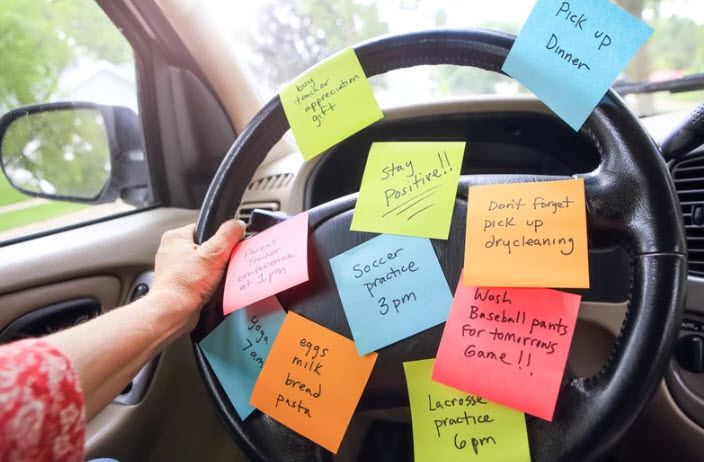 Pick up
Dinner
buy
teacher
appreciation
gift
Stay
Positive!!
Don't forget
pick up
drycleaning
Parent
Teacher
conference
at 1 pm
Soccer
practice
3 pm
Wash
Baseball pants
For tomorrows
Game!!
yoga
7am
eggs
milk
bread
pasta
Lacrosse
practice
6 pm